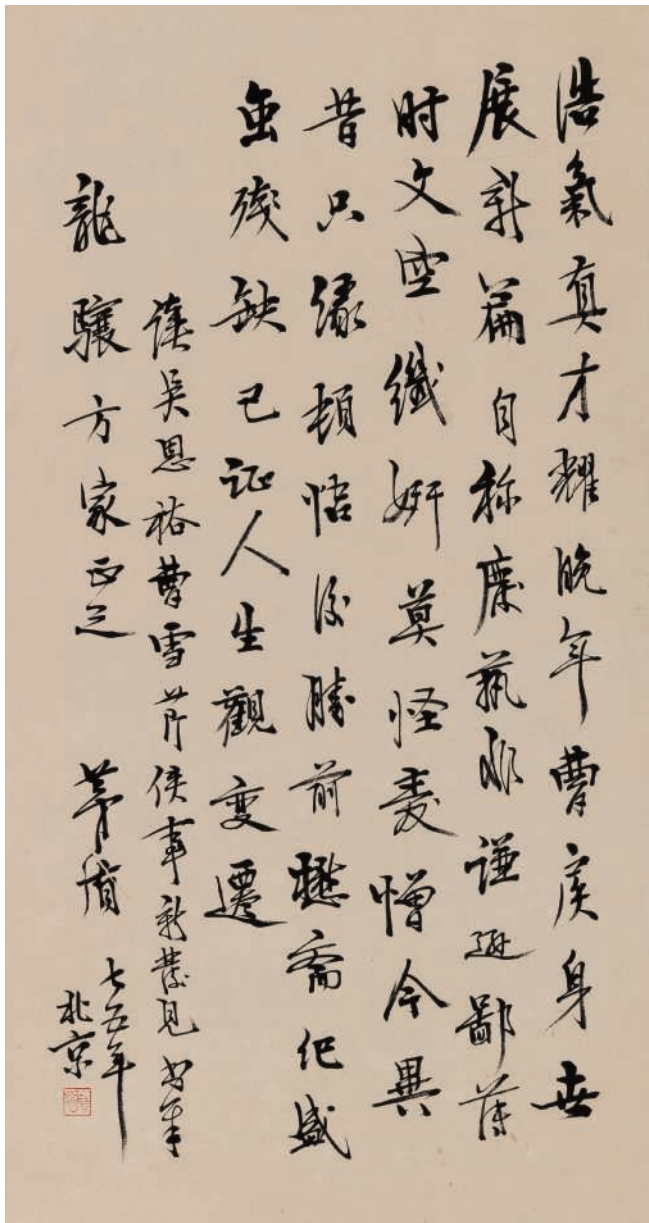 浩氣真才耀晚年曹侯身世
展新篇自称廢藝非谦逊鄙薄
时文空纖妍莫怪爱憎今異
昔只缘頓悟後勝前懋斋记盛
虽残缺已证人生觀变遷
读吴恩裕曹雪芹佚事新發見书奉
龍驤方家正之
茅盾 七五年
北京